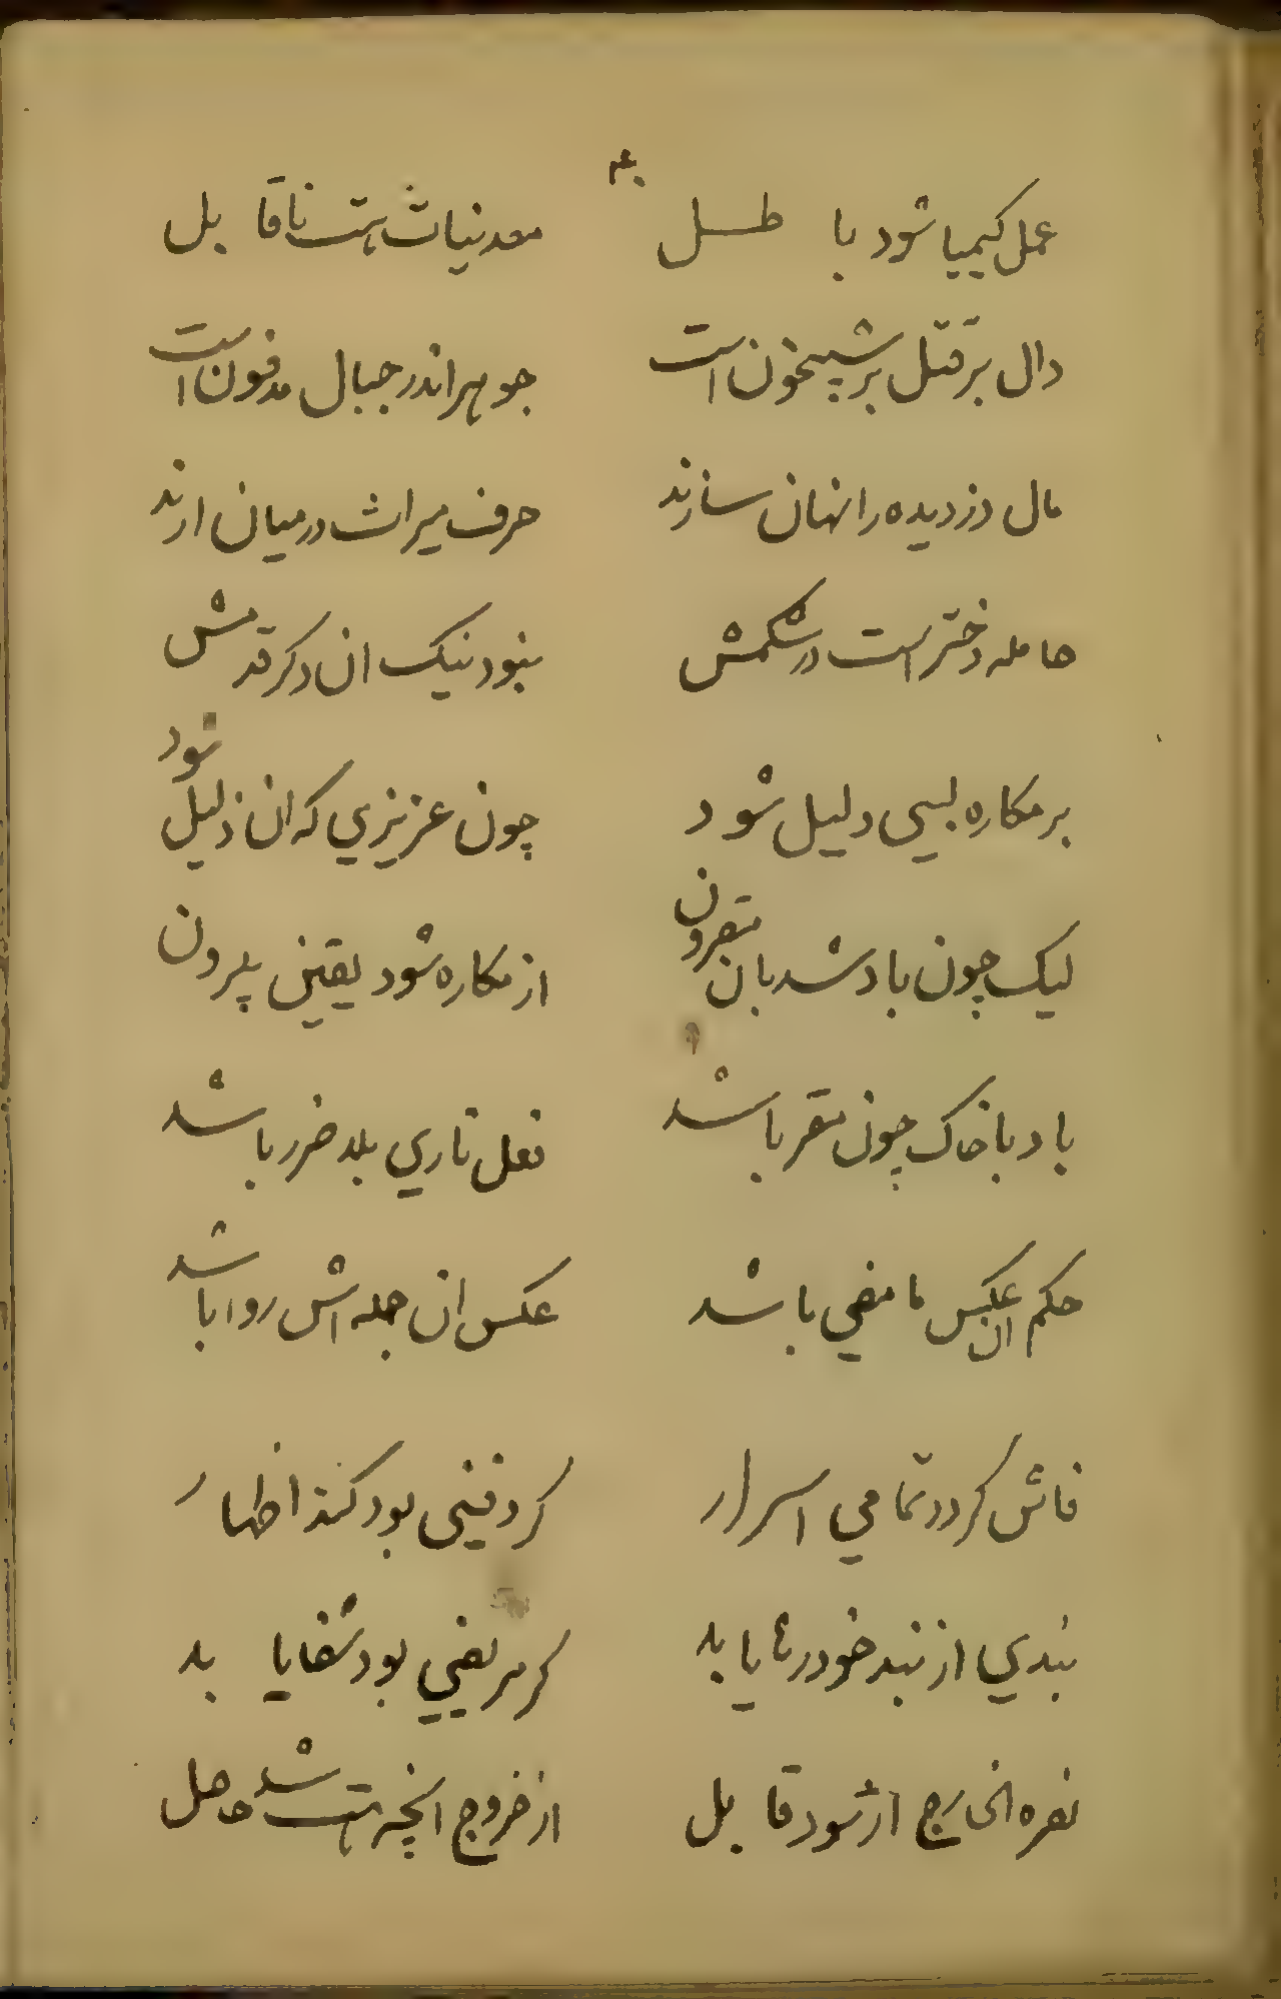 عمل کیمیا شود باطل معدنیات هست ناقابل
دال بر قتل بر شبیخون است جوهر اندر جبال مدفون است
مال دزدیده را نهان سازند حرف میراث در میان ارند
حامله دختر است در شکمش نبود نیک ان دکر قدمش
بر مکاره بسی دلیل شود چون عزیزی که ان ذلیل شود
لیک چون باد شد بان مقرون از مکاره شود یقین بیرون
باد با خاک چون مقر باشد فعل ناری بلد ضرر باشد
حکم ان عکس ما مضی باشد عکس ان جمله اش روا باشد
فاش کردد تمامی اسرار کر دفینی بود کند اظهار
بندی از بند خود رها یابد کر مریضی بود شفا یابد
نصره الخارج ار شود قابل از خروج انچه هست شد حاصل